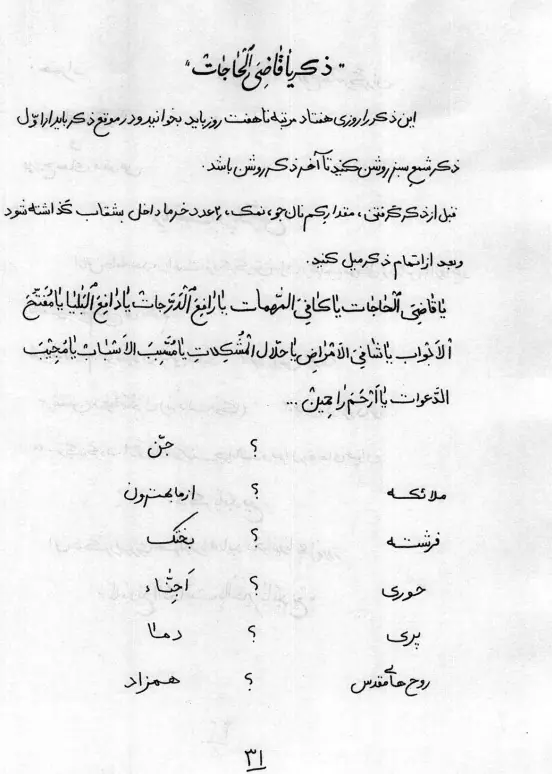 "ذکر یا قاضِیَ الْحاجات"
این ذکر را روزی هفتاد مرتبه تا هفت روز باید بخوانید و در موقع ذکر باید از اوّل
ذکر شمع سبز روشن کنید تا آخر ذکر روشن باشد.
قبل از ذکر گرفتن، مقدار یکم نان جو، نمک، ۲ عدد خرما داخل بشقاب گذاشته شود
و بعد از اتمام ذکر میل کنید.
یا قاضِیَ الْحاجات یا کافِیَ المُهِمات یا رافِعَ الْدَرَجات یا دافِعَ الْبَلیا یا مُفَتِحَ
الاَبواب یا شافِی الاَمْراضِ یا حلال الْمُشْکِلاتِ یا مُسَبِبَ الاَسْبابْ یا مُجیبَ
الدَعوات یا اَرْحَمَ راحِمیْن ...
؟ جنّ
ملائکه ؟ از ما بهترون
فرشته ؟ بختک
حوری ؟ اَجِنّاء
پری ؟
روح های مقدس ؟ همزاد
۳۱